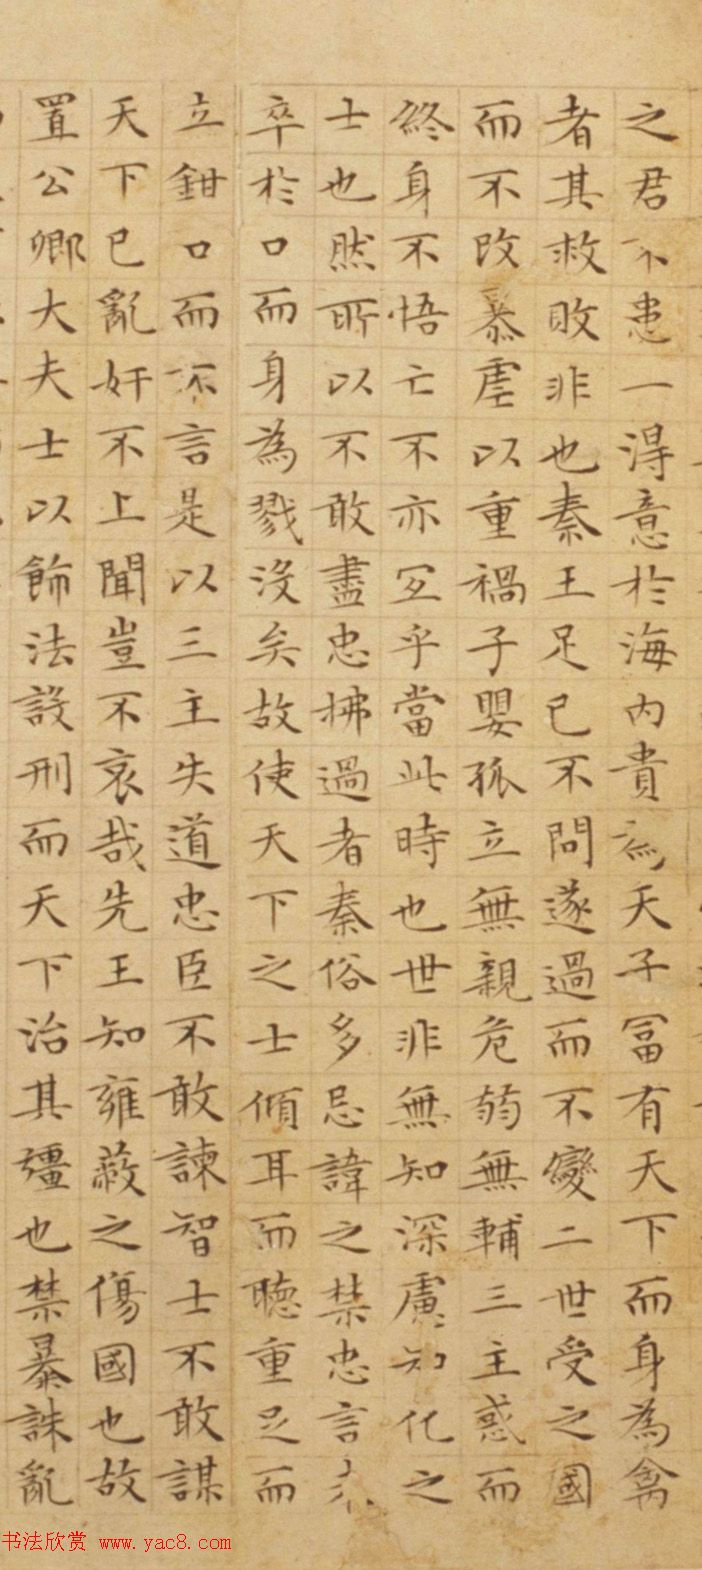 之君不患一淂意扵海内貴為天子冨有天下而身為禽
者其救敗非也秦王足已不問遂過而不變二世受之國
而不改暴虐以重禍子嬰孤立無親危弱無輔三主惑而
終身不悟亡不亦冝乎當此時也世非無知深慮知化之
士也然所以不敢盡忠拂過者秦俗多忌諱之禁忠言未
卒扵口而身為戮没矣故使天下之士傾耳而聴重足而
立鉗口而不言是以三主失道忠臣不敢諫智士不敢謀
天下已亂奸不上聞豈不哀哉先王知雍蔽之傷國也故
置公卿大夫士以飾法設刑而天下治其彊也禁暴誅亂
书法欣赏 www.yac8.com